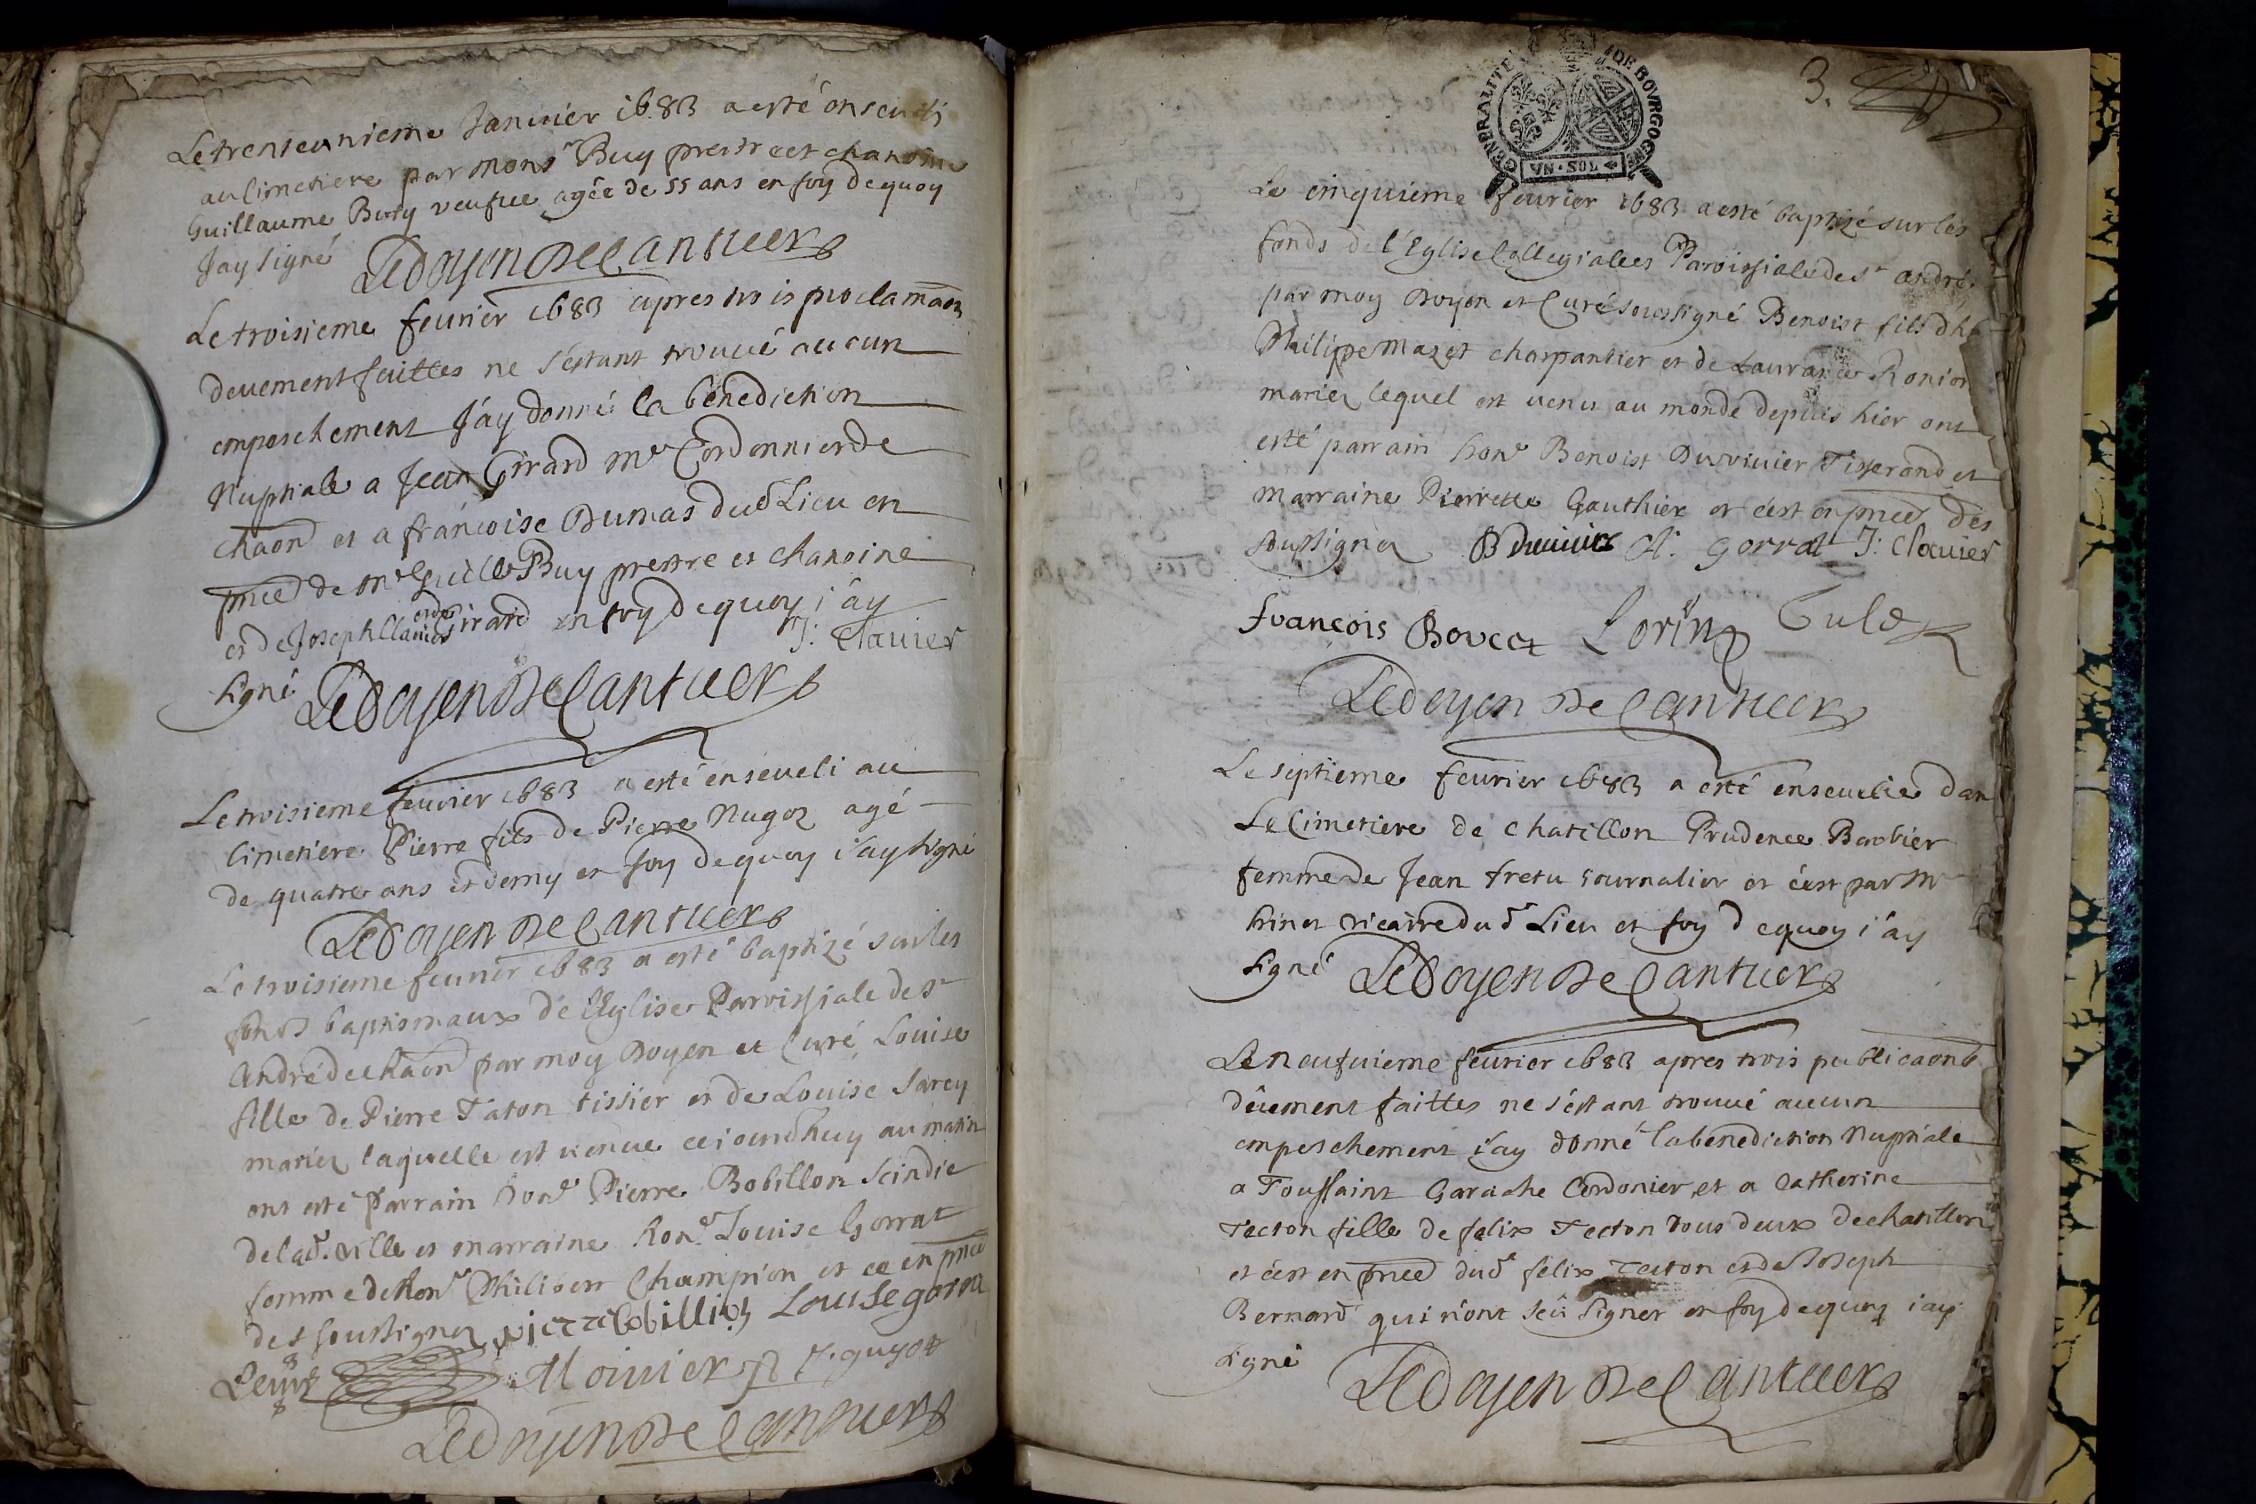 Le trente unieme Janvier 1683 a esté enseveli
au Cimetiere par Monsr Buy prestre et chanoine
Guillaume Buty veufue agée de 55 ans en foy dequoy
Jay signé Ledoyen DeCantuer
Le troisieme feurier 1683 apres trois proclamaon
deuement faittes ne s'estant trouué aucun
empeschement J'ay donné la benediction
Nuptiale a Jean Girard me Cordonnier de
chaon et a françoise Dumas dud Lieu en
pnce de mre Guille Buy prestre et chanoine
et de Joseph Clavier et de Girard en foy dequoy j'ay
J: Clavier
signé Ledoyen DeCantuer
Le troisieme feurier 1683 a esté enseueli au
Cimetiere Pierre fils de Pierre Nugoz agé
de quatre ans et demy en foy dequoy i'ay signé
Ledoyen DeCantuer
Le troisieme feurier 1683 a esté baptizé sur les
fonds baptismaux de l'Eglise Parroissiale de St
André de chaon par moy Doyen et Curé Louise
fille de Pierre Taton tissier et de Louise Sarcy
mariez laquelle est venue ce iourdhuy au matin
ont esté Parrain honle Pierre Bobillon Scindic
de lad. ville et marraine honle Louise Gorrat
femme de honle Philibert Champion et ce en pnce
des soussignez pierre bobillion Louise gorra
Moinier J. guyot
Ledoyen DeCantuer
GENERALITE DE BOVRGOGNE
VN · SOL
3.
Le cinquieme feurier 1683 a esté baptizé sur les
fonds de l'Eglise Collegiale et Paroissiale de St André
par moy Doyen et Curé soussigné Benoist fils d'ho
Philippe Mazet charpantier et de Laurance Ronior
mariez lequel est venu au monde depuis hier ont
esté parrain honle Benoist Duvivier Tisserand et
marraine Pierrette Gauthier et c'est en pnce des
soussignez B Duuivier Cl. Gorrat J: Clavier
francois Bovcet Lorin
Ledoyen DeCantuer
Le septieme feurier 1683 a esté enseuelie dan
Le Cimetiere de chatillon Prudence Barbier
femme de Jean fretu Journalier et c'est par Mr
hinot vicaire dud Lieu en foy dequoy i'ay
signé Ledoyen DeCantuer
Le neufuieme feurier 1683 apres trois publicaons
deüement faittes ne s'estant trouué aucun
empeschement i'ay donné la benediction Nuptiale
a Toussaint Garache Cordonier et a Catherine
Tecton fille de felix Tecton tous deux de chatillon
et c'est en pnce dud felix Tecton et de Joseph
Bernard qui n'ont seü signer en foy dequoy i'ay
signé Ledoyen DeCantuer